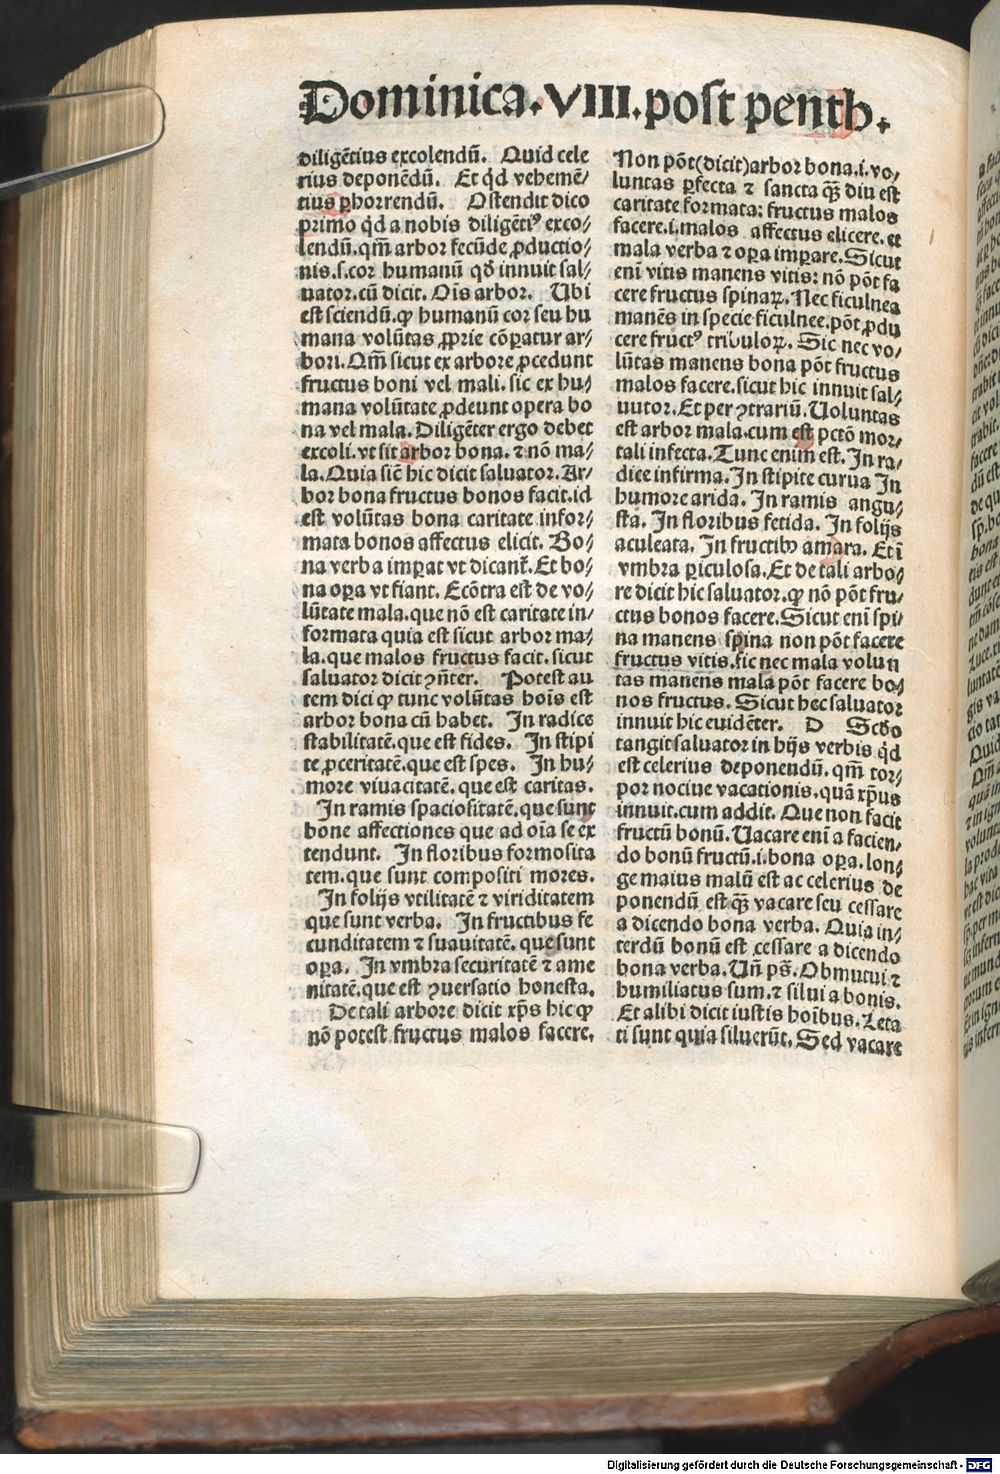 Dominica. VIII. post penth.
diligẽtius excolendũ. Quid cele
rius deponẽdũ. Et qͥd vehemẽ⸗
tius ꝑhorrendũ. Ostendit dico
primo qͥd a nobis diligẽtiꝰ exco⸗
lendũ. qm̃ arbor fecũde ꝓductio⸗
nis. s. cor humanũ qđ innuit sal⸗
uator. cũ dicit. Oĩs arbor. Ubi
est sciendũ. ꝙ humanũ cor seu hu
mana volũtas ꝓprie cõꝑatur ar⸗
bori. Qm̃ sicut ex arbore ꝓcedunt
fructus boni vel mali. sic ex hu⸗
mana volũtate ꝓdeunt opera bo
na vel mala. Diligẽter ergo debet
excoli. vt sit arbor bona. ⁊ nõ ma⸗
la. Quia sic̃ hic dicit saluator. Ar⸗
bor bona fructus bonos facit. id
est volũtas bona caritate infor⸗
mata bonos affectus elicit. Bo⸗
na verba imꝑat vt dicant̃. Et bo⸗
na oꝑa vt fiant. Ecõtra est de vo⸗
lũtate mala. que nõ est caritate in⸗
formata quia est sicut arbor ma⸗
la. que malos fructus facit. sicut
saluator dicit ꝯñter. Potest au
tem dici ꝙ tunc volũtas hoĩs est
arbor bona cũ habet. In radice
stabilitatẽ. que est fides. In stipi
te ꝓceritatẽ. que est spes. In hu⸗
more viuacitatẽ. que est caritas.
In ramis spaciositatẽ. que sunt
bone affectiones que ad oĩa se ex
tendunt. In floribus formosita
tem. que sunt compositi mores.
In folijs vtilitatẽ ⁊ viriditatem
que sunt verba. In fructibus fe
cunditatem ⁊ suauitatẽ. que sunt
oꝑa. In vmbra securitatẽ ⁊ ame
nitatẽ. que est ꝯuersatio honesta.
De tali arbore dicit xp̃s hic ꝙ
nõ potest fructus malos facere.
Non põt (dicit) arbor bona. i. vo⸗
luntas ꝑfecta ⁊ sancta qꝫ̃ diu est
caritate formata: fructus malos
facere. i. malos affectus elicere. et
mala verba ⁊ oꝑa imꝑare. Sicut
enĩ vitis manens vitis: nõ põt fa
cere fructus spinaꝝ. Nec ficulnea
manẽs in specie ficulnee. põt ꝓdu
cere fructꝰ tribuloꝝ. Sic nec vo⸗
lũtas manens bona põt fructus
malos facere. sicut hic innuit sal⸗
uutor. Et per ꝯtrariũ. Uoluntas
est arbor mala. cum est pctõ mor⸗
tali infecta. Tunc enim est. In ra⸗
dice infirma. In stipite curua In
humore arida. In ramis angu⸗
sta. In floribus fetida. In folijs
aculeata. In fructibꝰ amara. Et ĩ
vmbra ꝑiculosa. Et de tali arbo⸗
re dicit hic saluator. ꝙ nõ põt fru⸗
ctus bonos facere. Sicut enĩ spi⸗
na manens spina non põt facere
fructus vitis. sic nec mala volun
tas manens mala põt facere bo⸗
nos fructus. Sicut hec saluator
innuit hic euidẽter. D Scđo
tangit saluator in hijs verbis qͥd
est celerius deponendũ. qm̃ tor⸗
por nociue vacationis. quã xp̃us
innuit. cum addit. Que non facit
fructũ bonũ. Uacare enĩ a facien⸗
do bonũ fructũ. i. bona oꝑa. lon⸗
ge maius malũ est ac celerius de
ponendũ est qꝫ̃ vacare seu cessare
a dicendo bona verba. Quia in⸗
terdũ bonũ est cessare a dicendo
bona verba. Uñ ps̃. Obmutui ⁊
humiliatus sum. ⁊ silui a bonis.
Et alibi dicit iustis hoĩbus. Leta
ti sunt quia siluerũt. Sed vacare
Digitalisierung gefördert durch die Deutsche Forschungsgemeinschaft - DFG